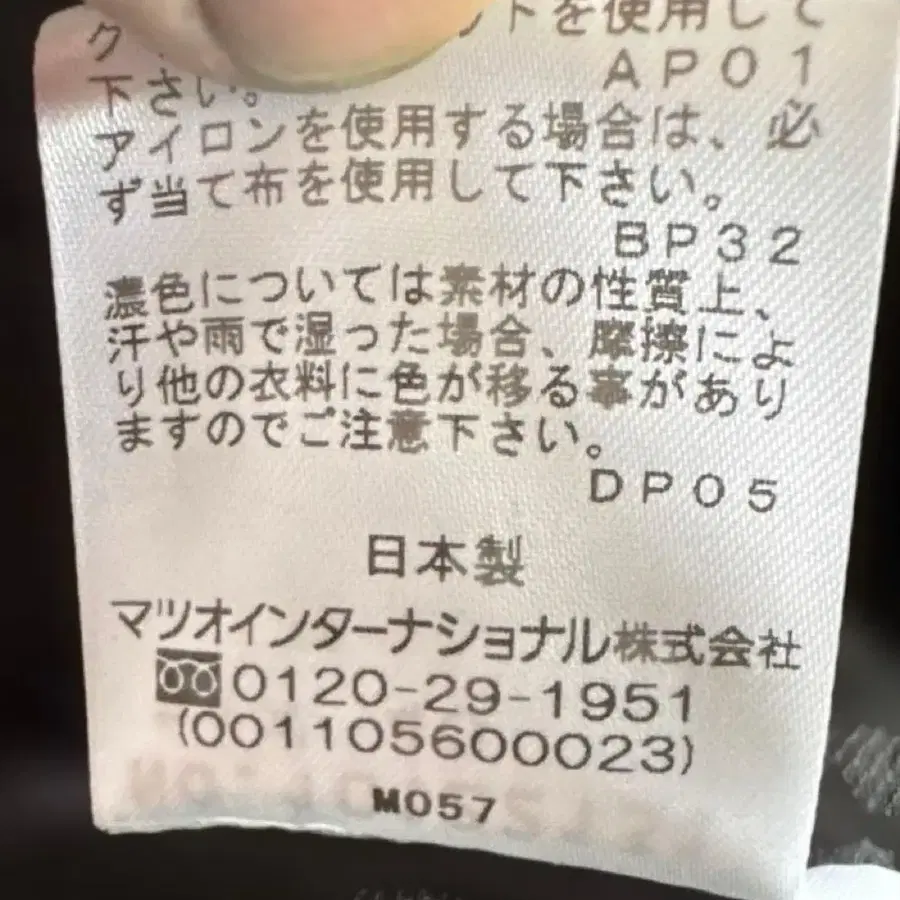 ク
ットを使用して
下さい。
AP01
アイロンを使用する場合は、必
ず当て布を使用して下さい。
BP32
濃色については素材の性質上、
汗や雨で湿った場合、摩擦によ
り他の衣料に色が移る事があり
ますのでご注意下さい。
DP05
日本製
マツオインターナショナル株式会社
0120-29-1951
(0011056000023)
M057